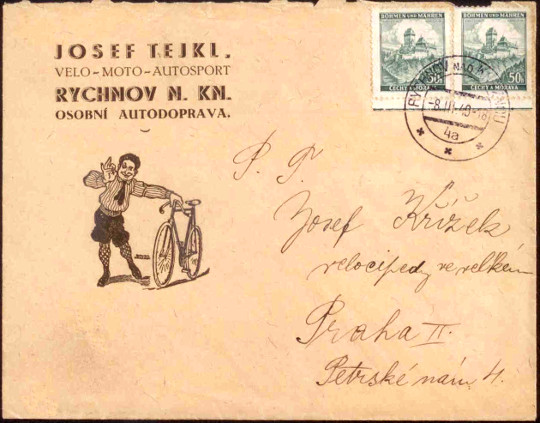 JOSEF TEJKL.
VELO-MOTO-AUTOSPORT
RYCHNOV N. KN.
OSOBNÍ AUTODOPRAVA.
BÖHMEN UND MÄHREN
50h
ČECHY A MORAVA
BÖHMEN UND MÄHREN
50h
ČECHY A MORAVA
RYCHNOV NAD
-8.III.40-18
4a
P. T.
Josef Křížek
velocipedy ve velkém
Praha II.
Petrské nám 4.